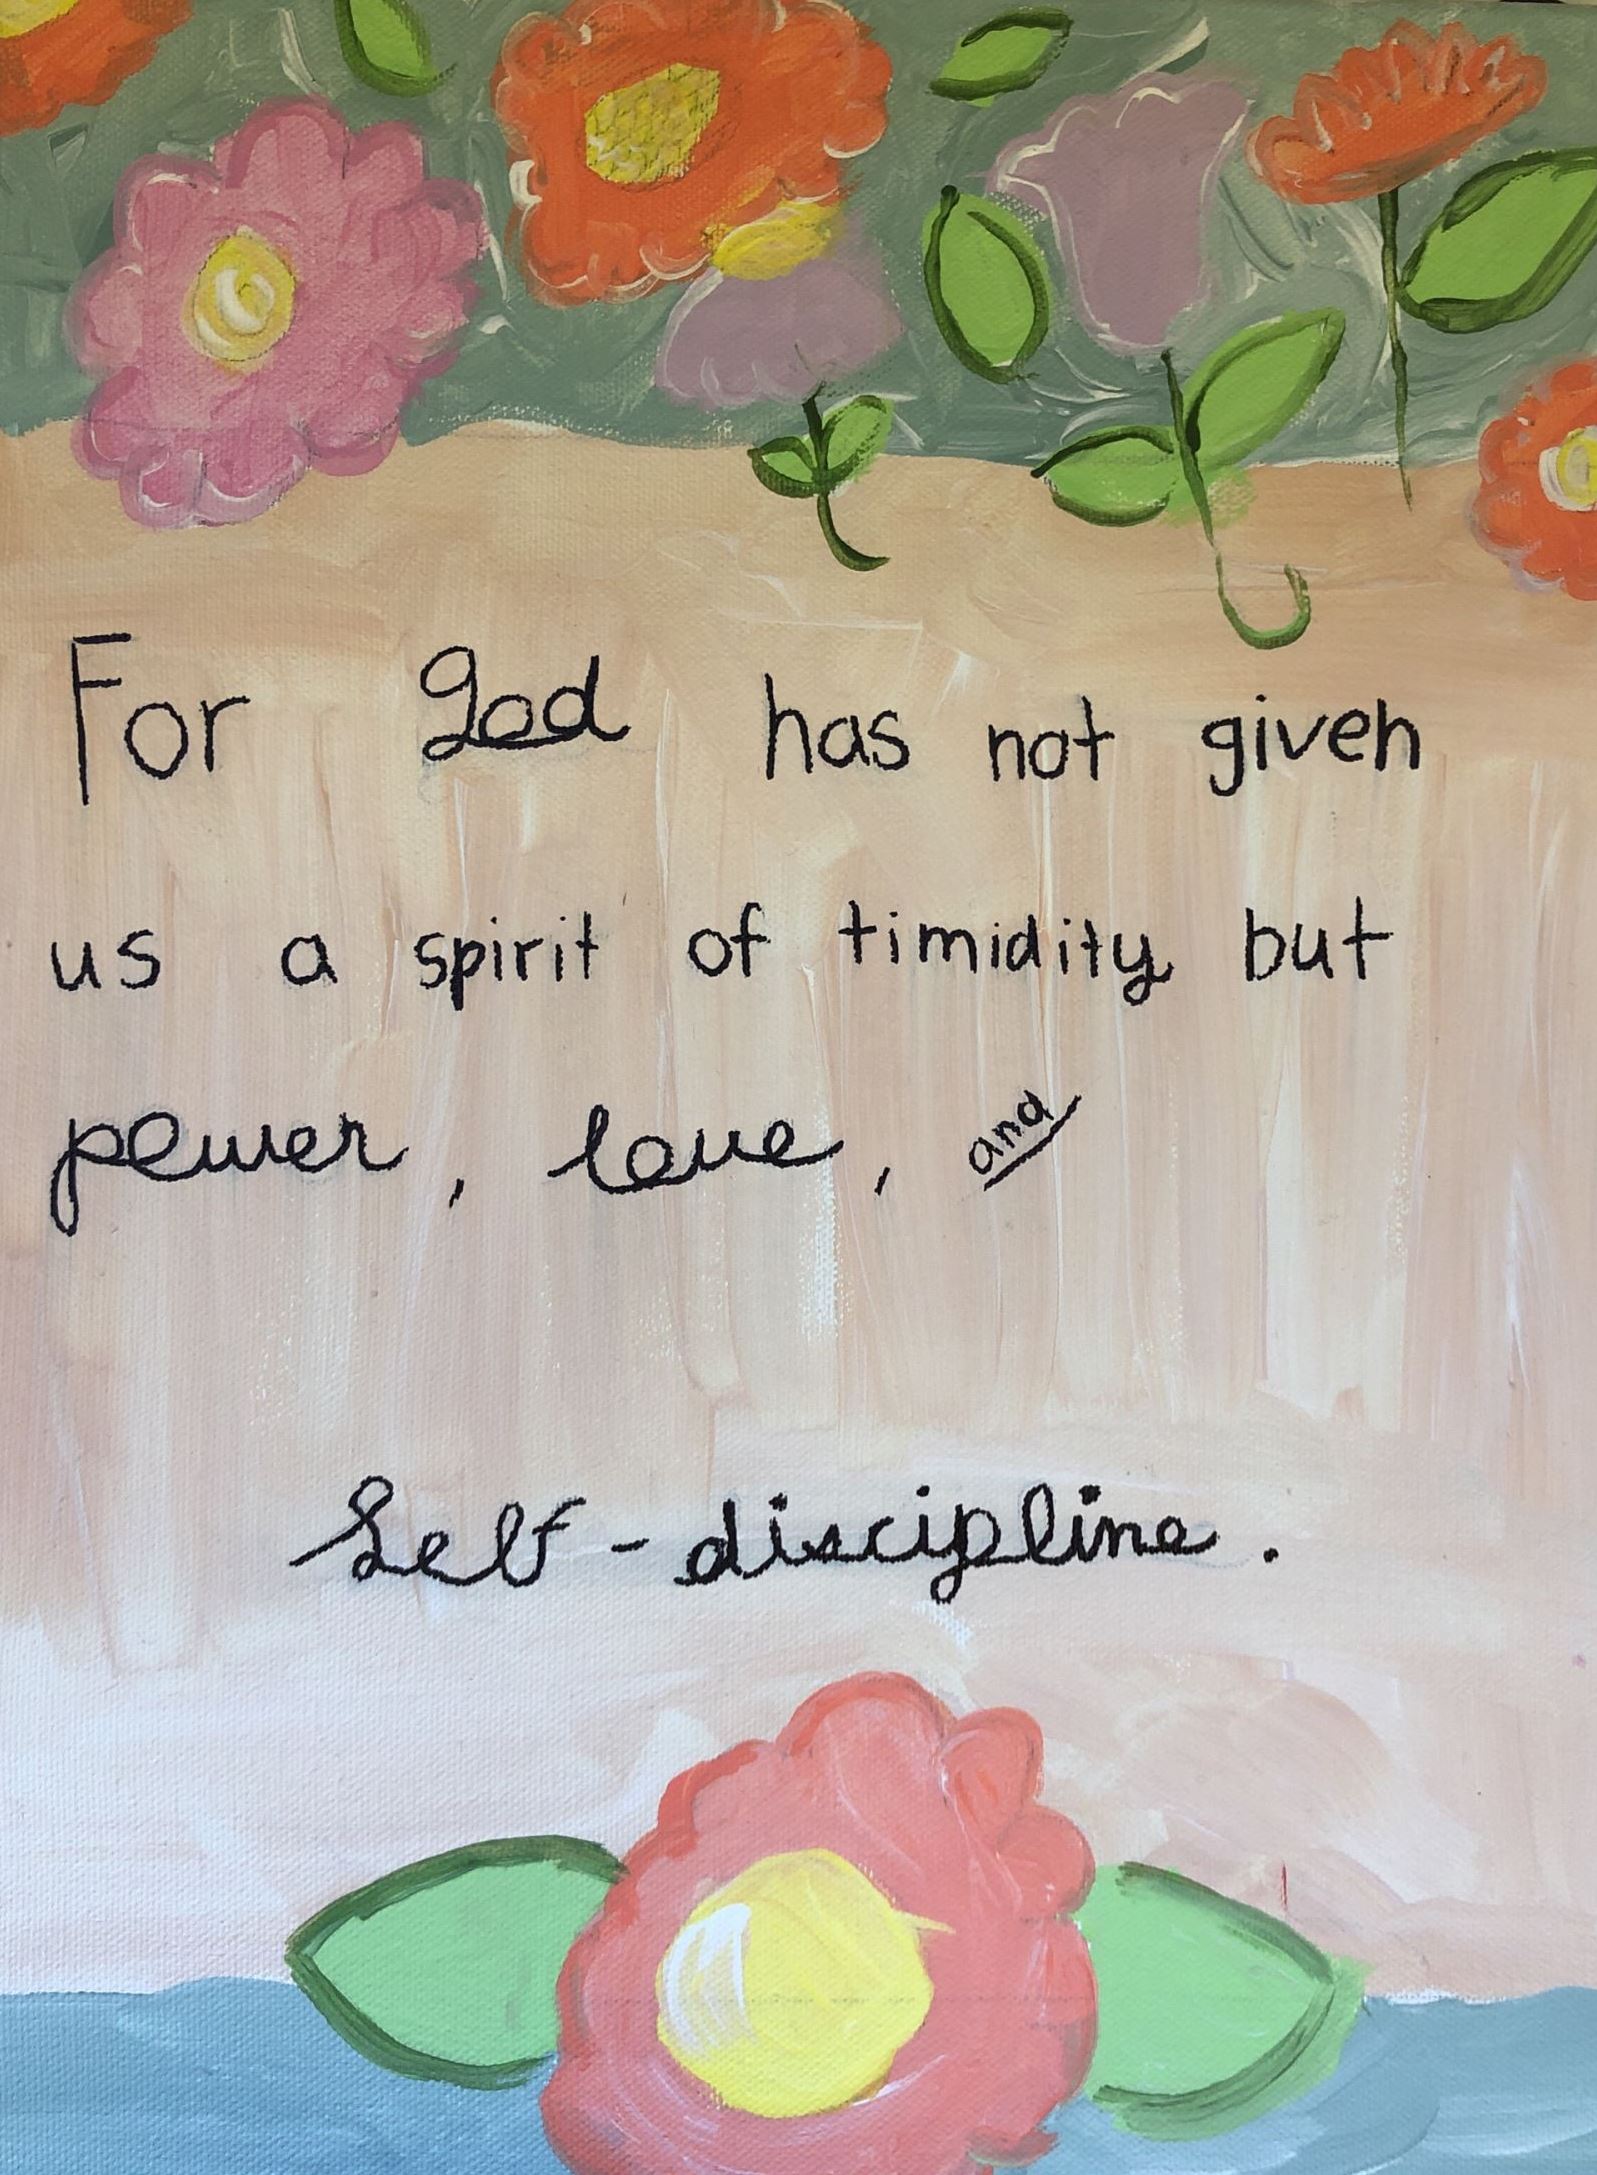 For God has not given
us a spirit of timidity but
power, love, and
Self-discipline.